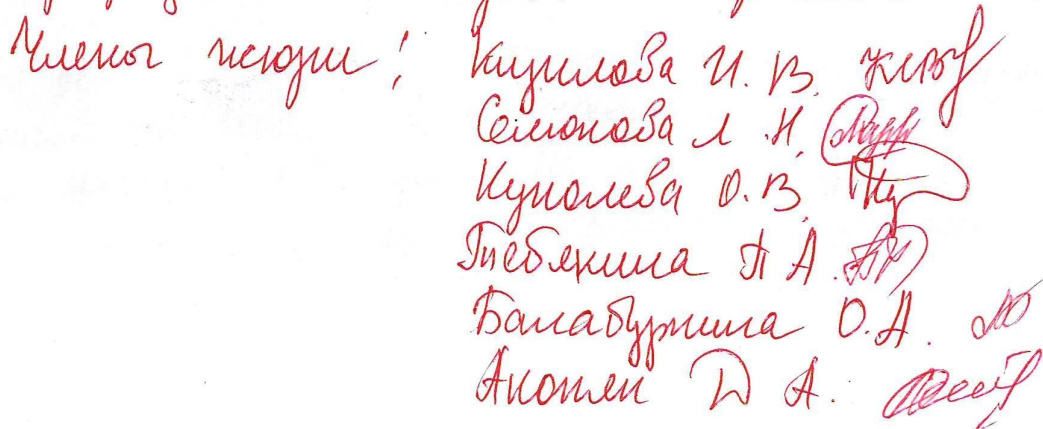 Члены жюри: Кизилова И. В.
Семенова Л. Н.
Куполева О. В.
А.
Балабуркина О. А.
Акопян Д. А.